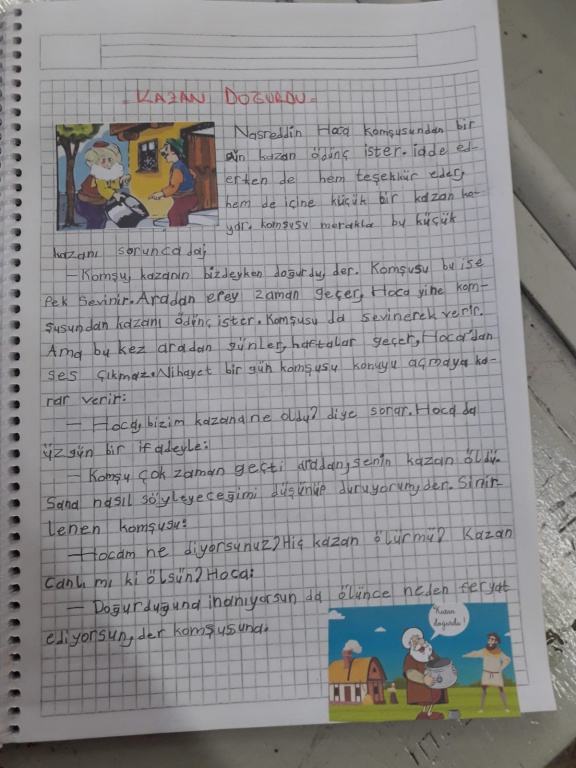 - KAZAN DOĞURDU -
Nasreddin Hoca komşusundan bir
gün kazan ödünç ister. iade ed-
erken de hem teşekkür eder,
hem de içine küçük bir kazan ko-
yar. komşusu merakla bu küçük
kazanı sorunca da;
- Komşu, kazanın bizdeyken doğurdu, der. Komşusu bu işe
Pek Sevinir. Aradan epey zaman geçer, Hoca yine kom-
şusundan kazanı ödünç ister. Komşusu da sevinerek verir.
Ama bu kez aradan günler, haftalar geçer, Hoca'dan
ses çıkmaz. Nihayet bir gün komşusu konuyu açmaya ka-
rar verir:
- Hoca, bizim kazana ne oldu? diye sorar. Hoca da
üzgün bir ifadeyle:
- Komşu çok zaman geçti aradan, senin kazan öldü.
Sana nasıl söyleyeceğimi düşünüp duruyorum, der. Sinir-
lenen komşusu:
- Hocam ne diyorsunuz? Hiç kazan ölürmü? Kazan
Canlı mı ki ölsün? Hoca:
- Doğurduğuna inanıyorsun da ölünce neden feryat
ediyorsun, der komşusuna.
Kazan
doğurdu !